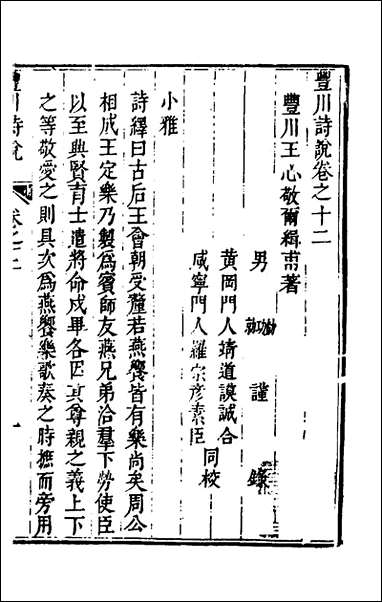 豐川詩說卷之十二
豐川王心敬爾緝甫著
男 勍 勍 謹 錄
黃岡門人靖道謨誠合
咸寧門人羅宗彥素臣
同校
小雅
詩繹曰古后王會朝受釐若燕饗皆有樂尚矣周公
相成王定樂乃製為賓師友燕兄弟洽羣下勞使臣
以至興賢育士遣將命戍畢各因其尊親之義上下
之等敬愛之則具次為燕饗樂歌奏之時摭而旁用
豐川詩說
卷之十二
一